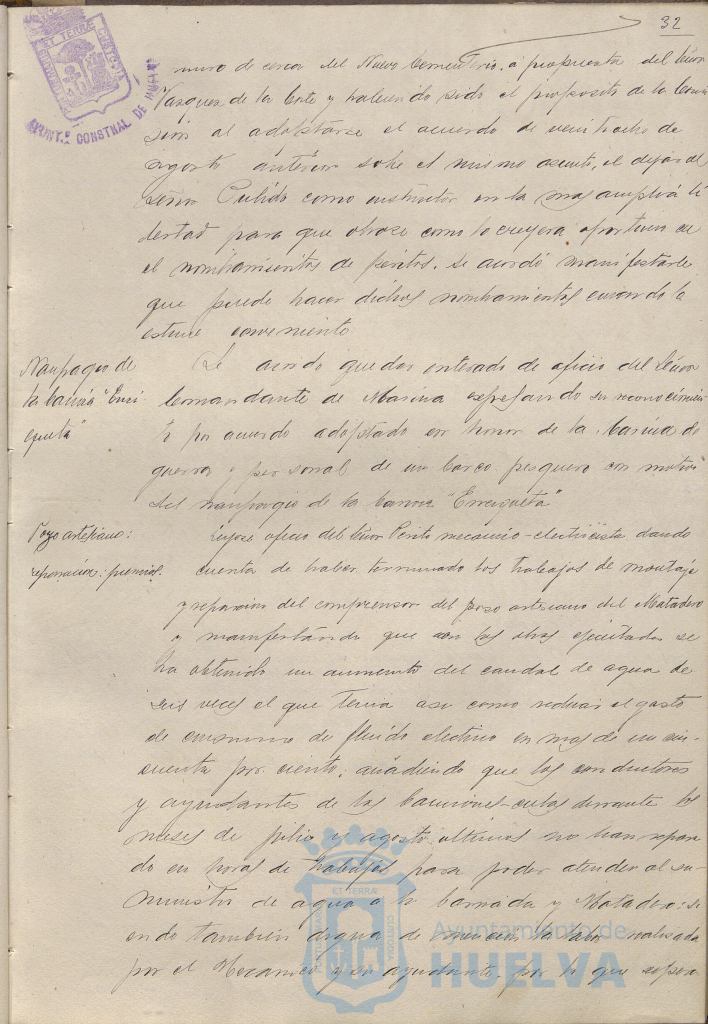 32
ET TERRÆ
AYUNT.º CONSTNAL DE HUELVA
muro de cerca del Nuevo Cementerio, a propuesta del Señor
Vazquez de la Corte y habiendo sido el proposito de la Comi
sión al adoptarse el acuerdo de veintiocho de
agosto anterior sobre el mismo asunto, el dejar al
Señor Pulido como instructor en la mas amplia li
bertad para que obrase como lo creyera oportuno en
el nombramientos de peritos. Se acordó manifestarle
que puede hacer dichos nombramientos cuando lo
estime conveniente
Naufragio de
la lancha "Enri
queta"
Se acordo quedar enterado de oficio del Señor
Comandante de Marina expresando su reconocimien
to por acuerdo adoptado en honor de la Marina de
guerra y personal de un barco pesquero con motivo
del naufragio de la "Enriqueta"
Pozo artesiano:
reparacion: premios.
Leyose oficio del Señor Perito mecanico-electricista dando
cuenta de haber terminado los trabajos de montaje
y reparacion del compresor del pozo artesiano del Matadero
y manifestando que con las obras ejecutadas se
ha obtenido un aumento del caudal de agua de
seis veces el que tenia asi como reducir el gasto
de consumo de fluido electrico en mas de un cin-
cuenta por ciento; añadiendo que los conductores
y ayudantes de los camiones-cubas durante los
meses de julio y agosto ultimos no han repara
do en horas de trabajos para poder atender al su-
ministro de agua a la barriada y Matadero: si
endo tambien digna de la realizada
por el Mecanico y su ayudante, por lo que espera
ET TERRÆ
Ayuntamiento de
HUELVA